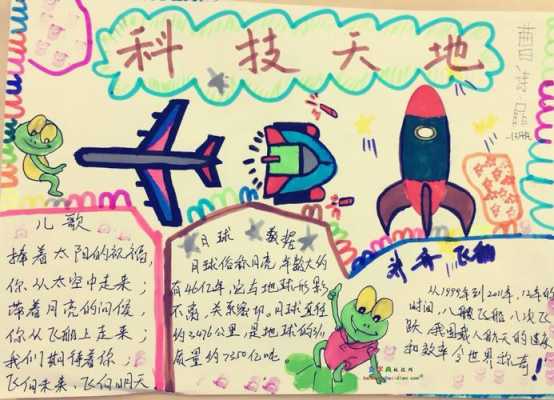 科技天地
儿歌
捧着太阳的祝福,
你从太空中走来;
带着月亮的问候,
你从飞船上走来;
我们期待着你;
飞向未来、飞向明天
月球数据
月球俗称月亮,年龄大约
有46亿年,它与地球形影
不离,关系密切,月球直径
约3476公里,是地球的3/11
质量约7350亿吨
神舟飞船
从1999年到2011年,12年的
时间,八艘飞船,八次飞
跃,我国载人航天的速度
和效率令世界称奇!